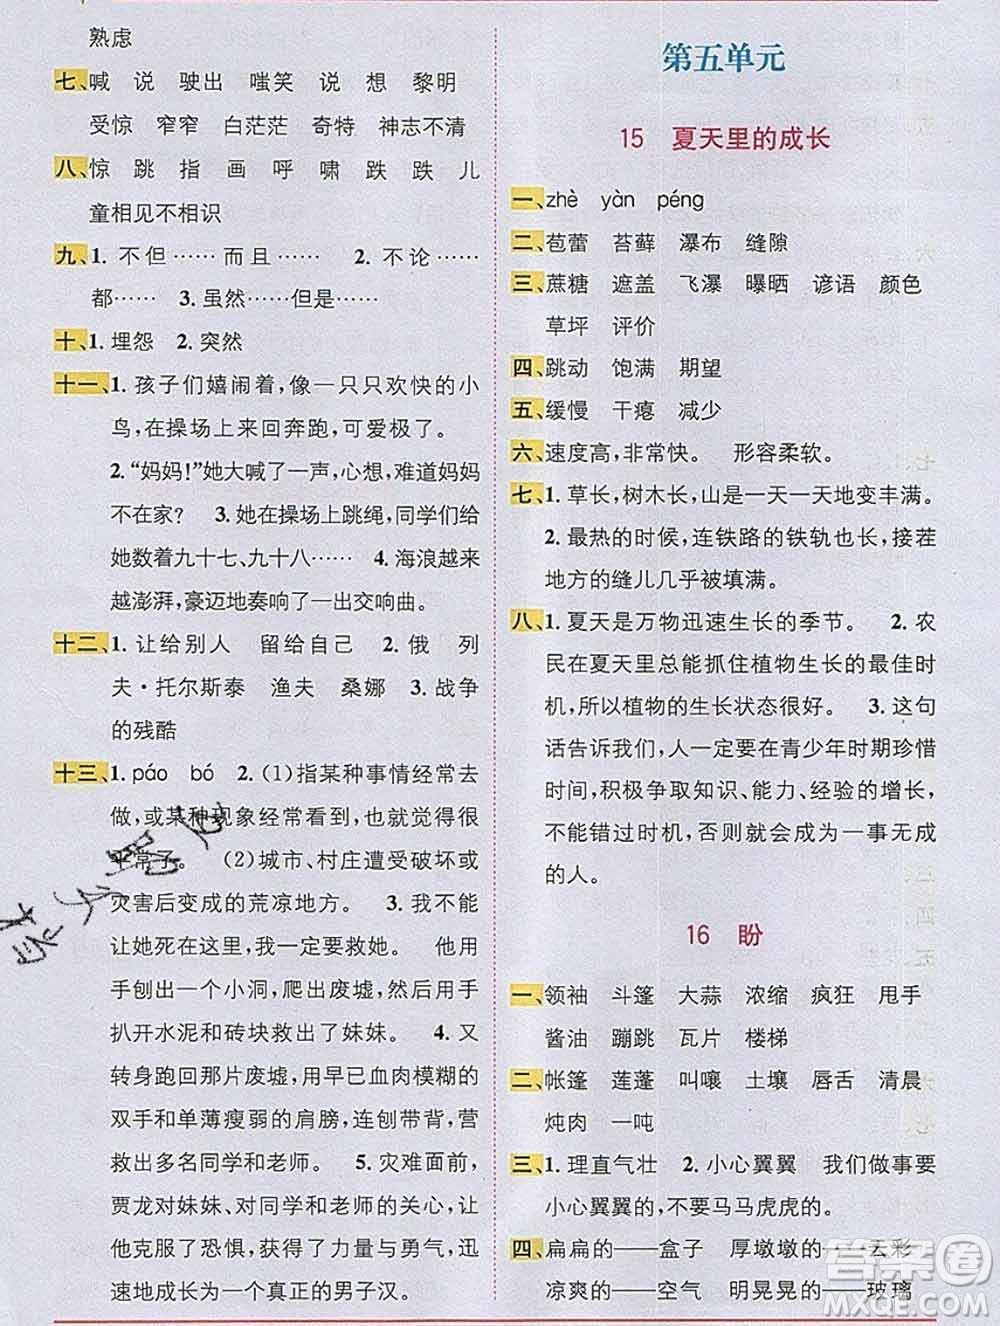 熟虑
七、喊 说 驶出 嗤笑 说 想 黎明
受惊 窄窄 白茫茫 奇特 神志不清
八、惊 跳 指 画 呼 啸 跌 跌 儿
童相见不相识
九、1. 不但……而且…… 2. 不论……
都…… 3. 虽然……但是……
十、1. 埋怨 2. 突然
十一、1. 孩子们嬉闹着,像一只只欢快的小
鸟,在操场上来回奔跑,可爱极了。
2.“妈妈!”她大喊了一声,心想,难道妈妈
不在家? 3. 她在操场上跳绳,同学们给
她数着九十七、九十八…… 4. 海浪越来
越澎湃,豪迈地奏响了一出交响曲。
十二、1. 让给别人 留给自己 2. 俄 列
夫·托尔斯泰 渔夫 桑娜 3. 战争
的残酷
十三、1. páo bó 2. (1)指某种事情经常去
做,或某种现象经常看到,也就觉得很
平常了。 (2)城市、村庄遭受破坏或
灾害后变成的荒凉地方。 3. 我不能
让她死在这里,我一定要救她。 他用
手刨出一个小洞,爬出废墟,然后用手
扒开水泥和砖块救出了妹妹。 4. 又
转身跑回那片废墟,用早已血肉模糊的
双手和单薄瘦弱的肩膀,连刨带背,营
救出多名同学和老师。 5. 灾难面前,
贾龙对妹妹、对同学和老师的关心,让
他克服了恐惧,获得了力量与勇气,迅
速地成长为一个真正的男子汉。
第五单元
15 夏天里的成长
一、zhè yàn péng
二、苞蕾 苔藓 瀑布 缝隙
三、蔗糖 遮盖 飞瀑 曝晒 谚语 颜色
草坪 评价
四、跳动 饱满 期望
五、缓慢 干瘪 减少
六、速度高,非常快。 形容柔软。
七、1. 草长,树木长,山是一天一天地变丰满。
2. 最热的时候,连铁路的铁轨也长,接茬
地方的缝儿几乎被填满。
八、1. 夏天是万物迅速生长的季节。 2. 农
民在夏天里总能抓住植物生长的最佳时
机,所以植物的生长状态很好。 3. 这句
话告诉我们,人一定要在青少年时期珍惜
时间,积极争取知识、能力、经验的增长,
不能错过时机,否则就会成为一事无成
的人。
16 盼
一、领袖 斗篷 大蒜 浓缩 疯狂 甩手
酱油 蹦跳 瓦片 楼梯
二、帐篷 莲蓬 叫嚷 土壤 唇舌 清晨
炖肉 一吨
三、1. 理直气壮 2. 小心翼翼 我们做事要
小心翼翼的,不要马马虎虎的。
四、扁扁的——盒子 厚墩墩的——云彩
凉爽的——空气 明晃晃的——玻璃
答案圈
MXQE.COM